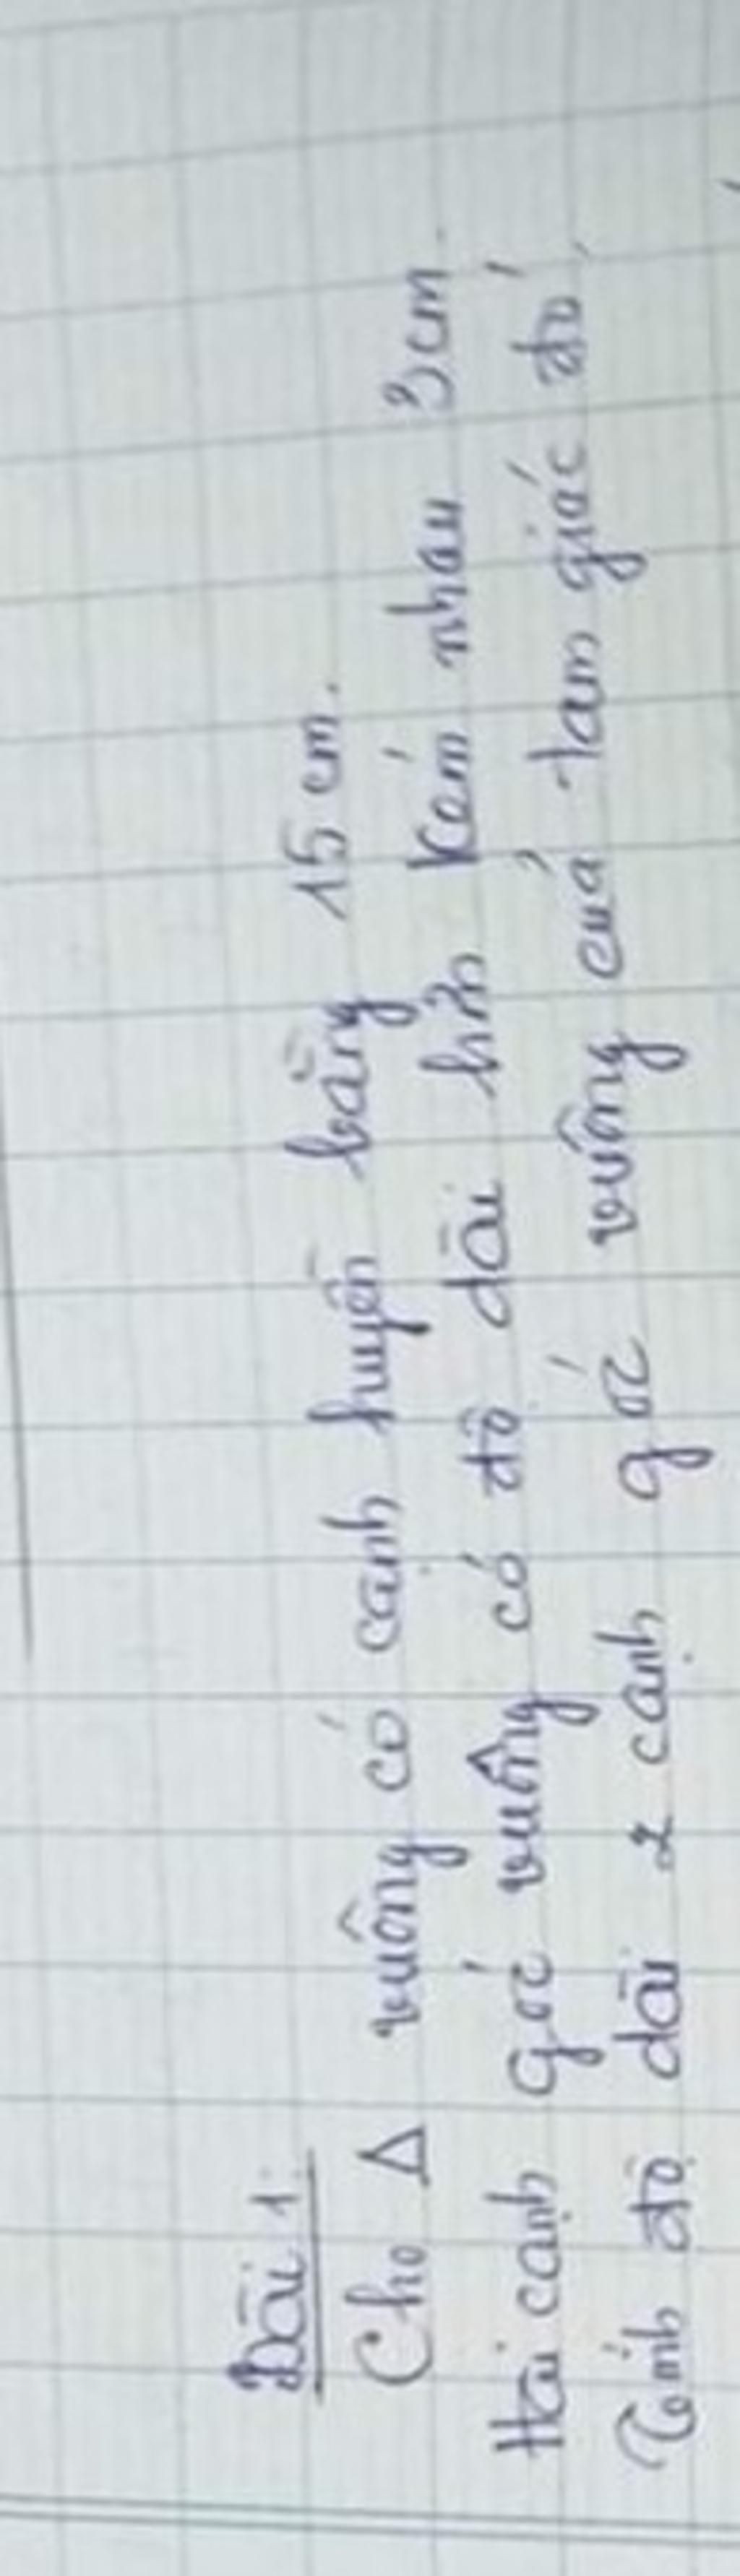 Bài 1:
Cho Δ vuông có cạnh huyền bằng 15 cm.
Hai cạnh góc vuông có độ dài hơn kém nhau 3cm.
Tính độ dài 2 cạnh góc vuông của tam giác đó,